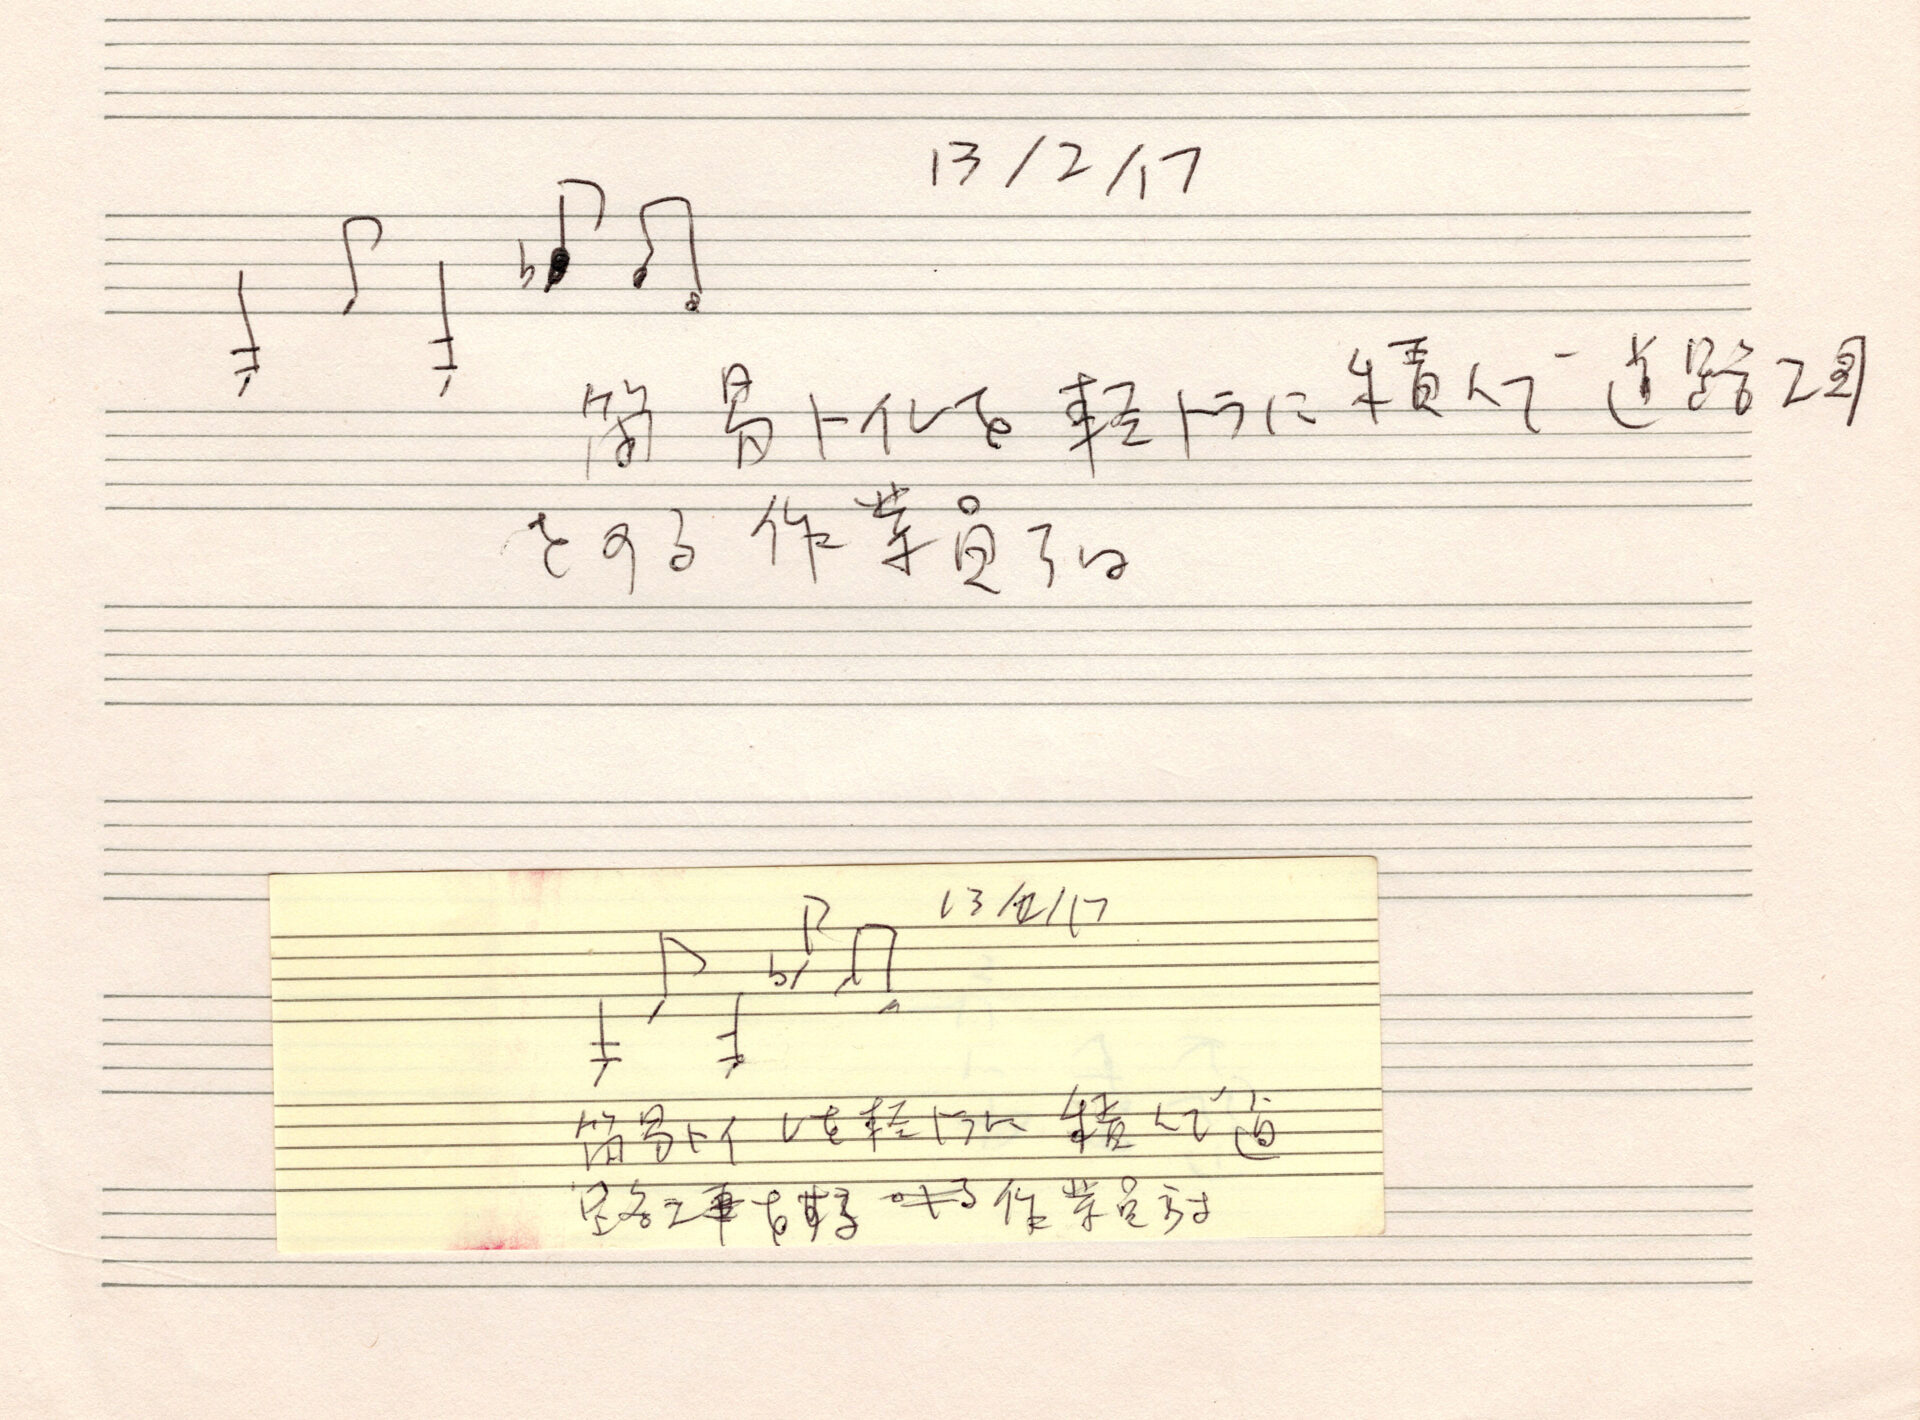 13/2/17
簡易トイレを軽トラに積んで道路工
をする作業員
13/2/17
簡易トイレを軽トラに積んで道
路工事を 作業員